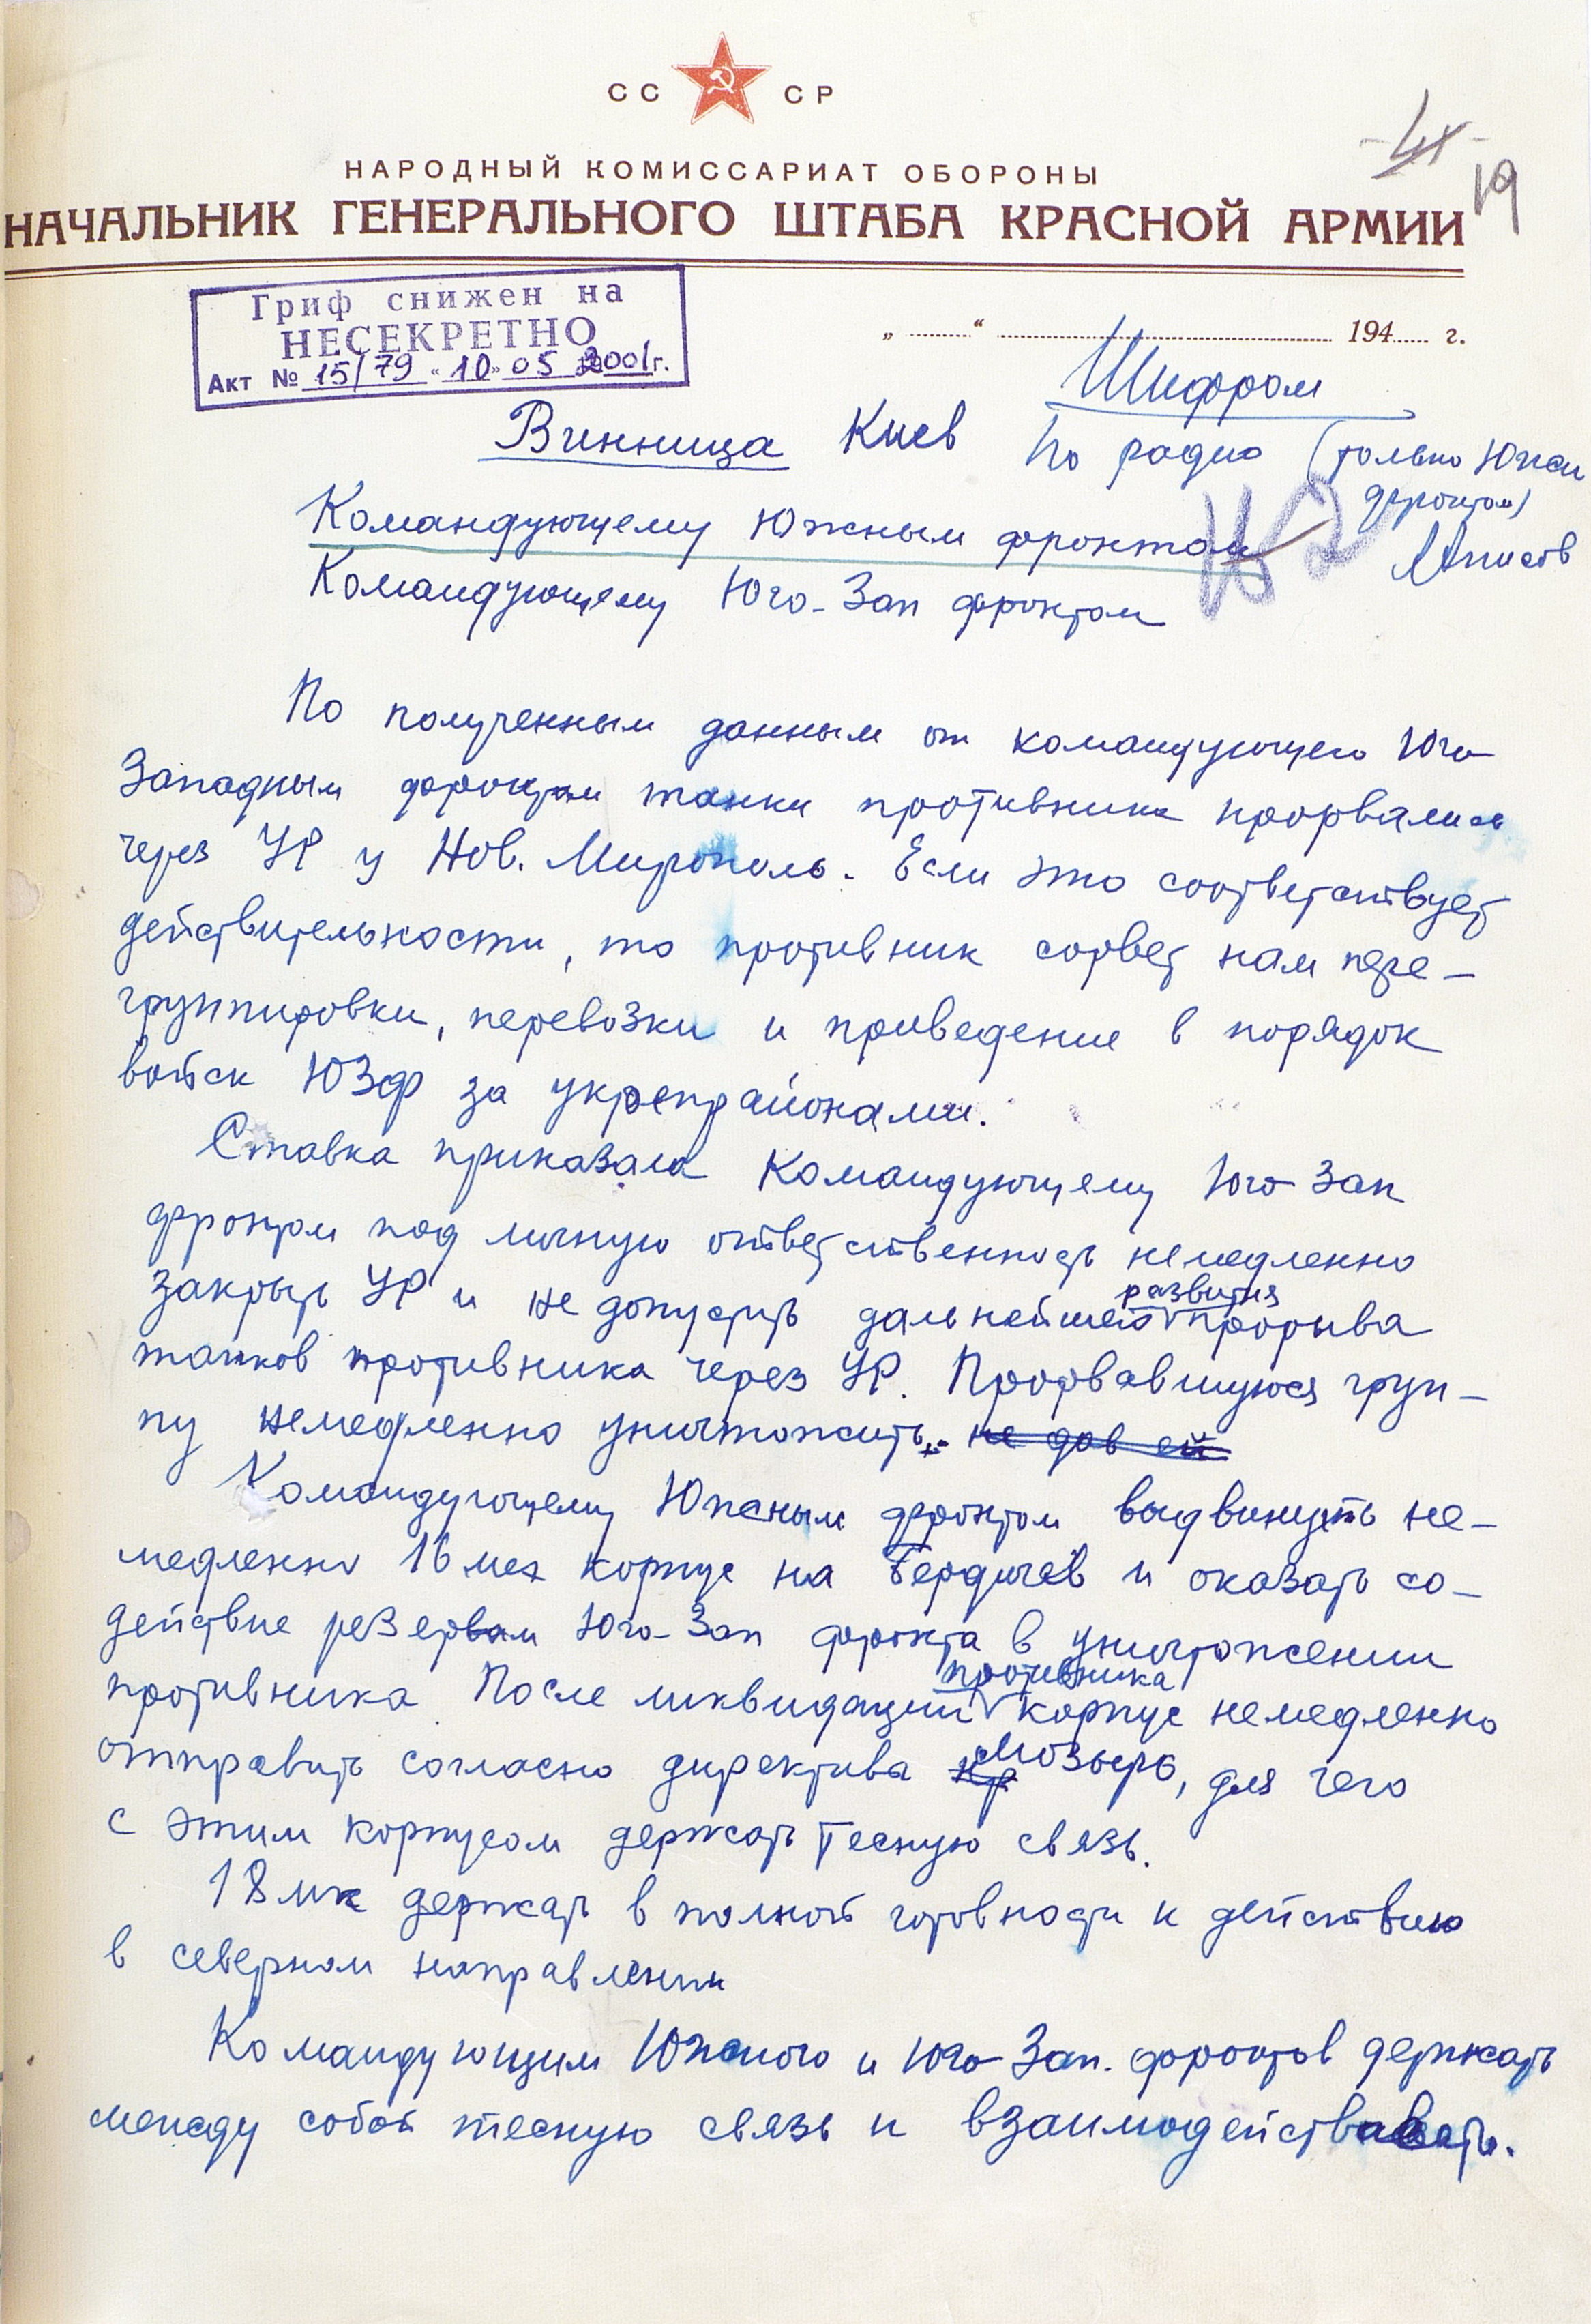 СС СР
-4х-
19
НАРОДНЫЙ КОМИССАРИАТ ОБОРОНЫ
НАЧАЛЬНИК ГЕНЕРАЛЬНОГО ШТАБА КРАСНОЙ АРМИИ
Гриф снижен на
НЕСЕКРЕТНО
Акт № 15/79 „10» 05 2001г.
„ ........“ ........................ 194..... г.
Шифром
Винница Киев По радио (только Южн
фронтом)
Командующему Южным фронтом
Командующему Юго-Зап фронтом
По полученным данным от командующего Юго
Западным фронтом танки противника прорвались
через УР у Нов. Мирополь. Если это соответствует
действительности, то противник сорвет нам пере-
группировки, перевозки и приведение в порядок
войск ЮЗФ за укрепрайонами.
Ставка приказала Командующему Юго Зап
фронтом под личную ответственность немедленно
закрыть УР и не допустить дальнейшего развития прорыва
танков противника через УР. Прорвавшуюся груп-
пу немедленно уничтожить. не дав ей
Командующему Южным фронтом выдвинуть не-
медленно 16 мех корпус на Бердичев и оказать со-
действие резервам Юго-Зап фронта в уничтожении
противника. После ликвидации противника корпус немедленно
отправить согласно директива Мозырь, для чего
с этим корпусом держать тесную связь.
18 мк держать в полной готовности к действию
в северном направлении
Командующим Южного и Юго Зап. фронтов держать
между собой тесную связь и взаимодействовать.